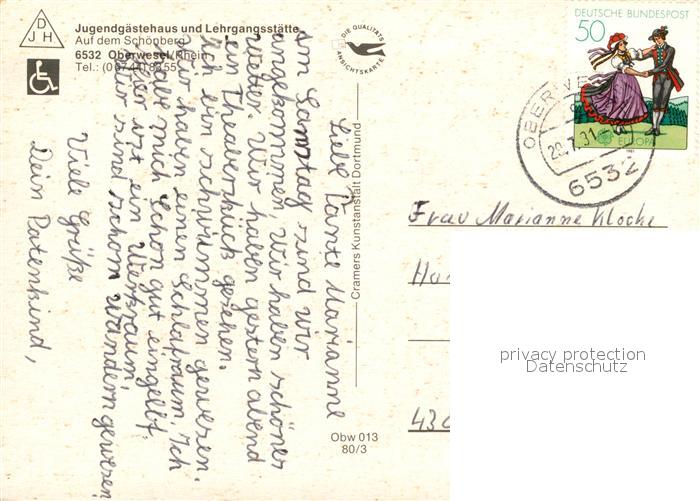 DJH
Jugendgästehaus und Lehrgangsstätte
Auf dem Schönberg
6532 Oberwesel/Rhein
Tel.: (06744) 8355
DIE QUALITÄTS
ANSICHTSKARTE
DEUTSCHE BUNDESPOST
50
EUROPA
1981
OBERWE
6532
Liebe Tante Marianne
Am Samstag sind wir
angekommen, Wir haben schönes
Wetter. Wir haben gestern abend
ein Theaterstück gesehen.
Ich bin schwimmen gewesen.
Wir haben einen Schlafraum. Ich
habe mich schon gut eingelbt.
Hier ist ein Werkraum.
Wir sind schon wandern gewesen
Viele Grüße
Dein Patenkind,
Cramers Kunstanstalt Dortmund
Obw 013
80/3
Frau Marianne Klocke
privacy protection
Datenschutz